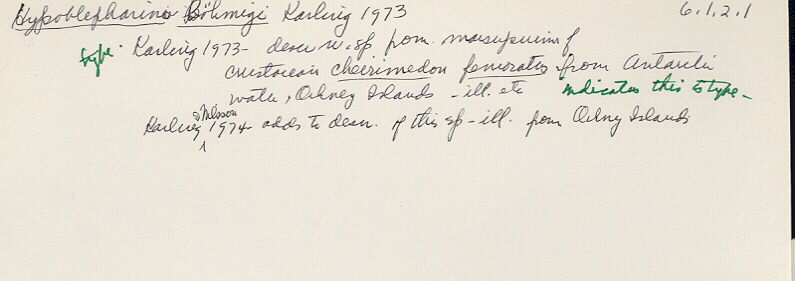 Hypoblepharina Böhmigi Karling 1973 6.1.2.1
type. Karling 1973 - descr n. sp. from marsupium of
crustacean cheirimedon femoratus from Antarctic
water, Orkney Islands - ill. etc indicates this is type -
& Nilsson
Karling 1974 adds to descr. of this sp - ill. from Orkney Islands